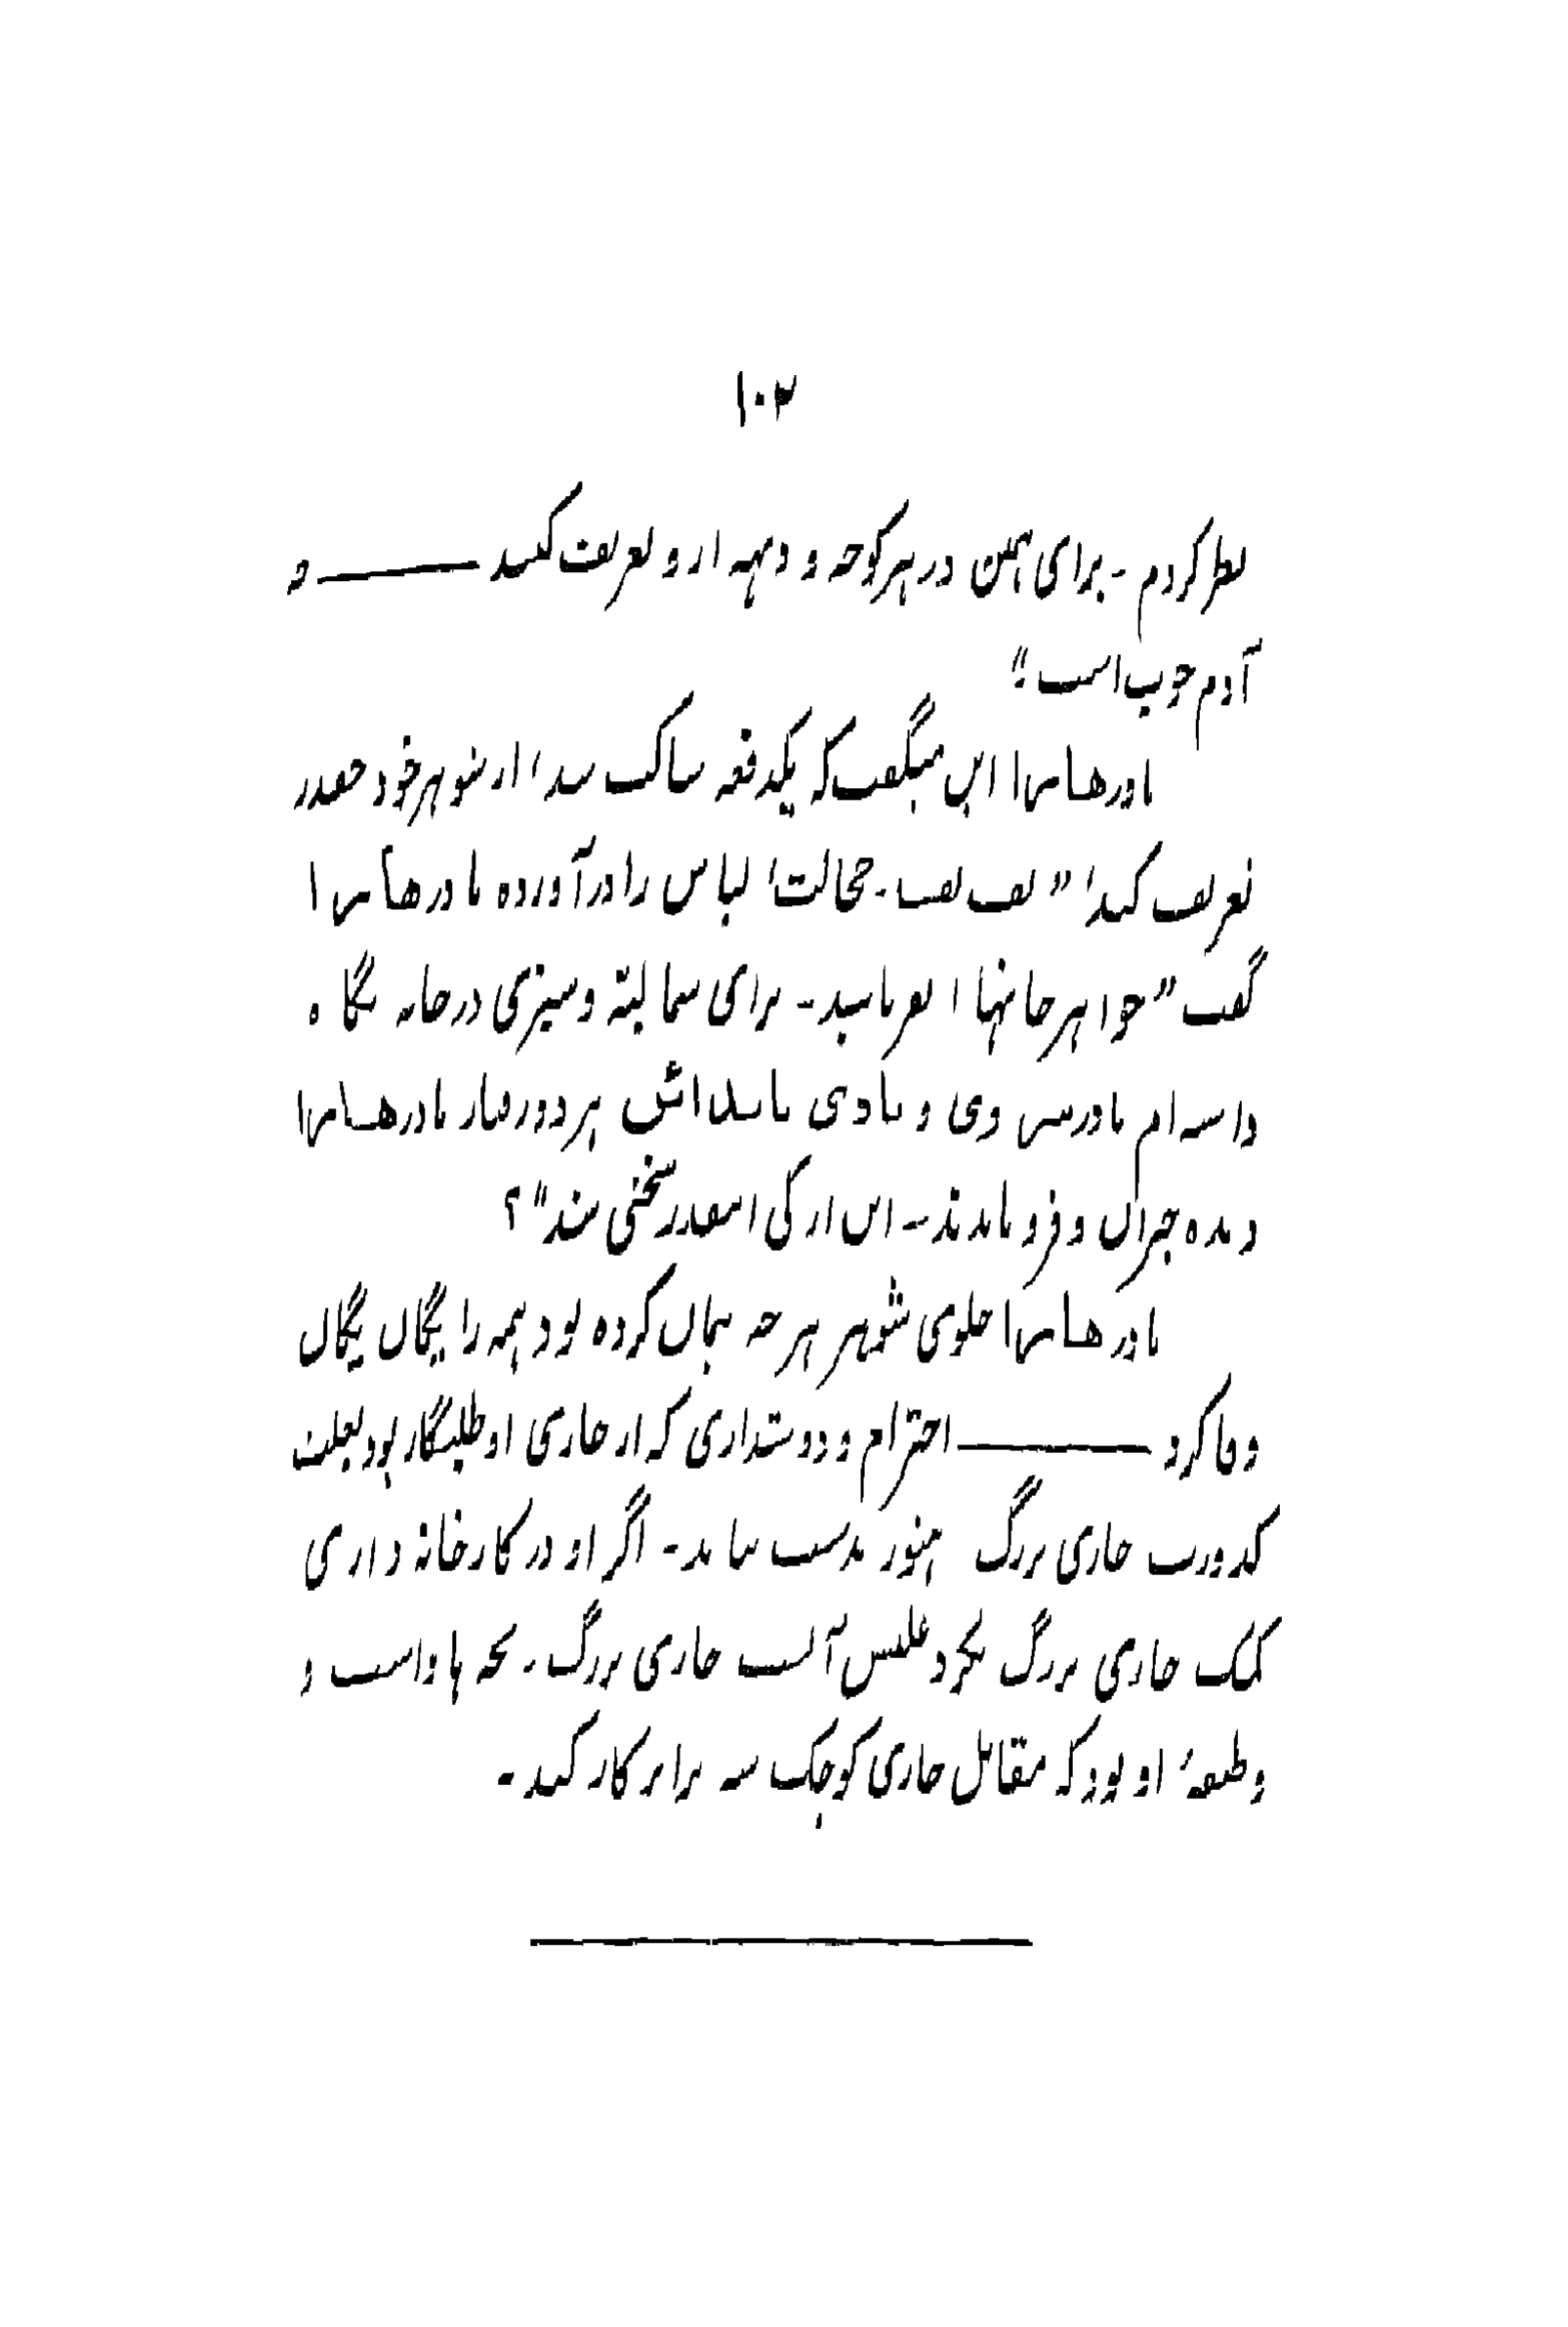 ۱۰۲
نظر کردم ۔ برای همین در هر کوچه و دهه ازو تعریف کنید ——— چه
آدم خوب است؛"
مادرهاسها این میگفت که یکدفعه ساکت شد، از شوهر خود چقدر
تعریف کند، " لعب لعب ۔ خجالت، لباس را در آورده مادرهاسها
گفت "خواهر جانها بفرمایید ۔ برای شما البتة و سبزی در خانه نگاه
داشته‌ام مادرس وی و شادی هر دو رفتار مادرهاسها
دیده حیران و فرو ماندند ۔ این از کی اسقدر سخی شد"؟
مادرهاسها جلوی شوهر هر چه پیمان کرده بود همه را یگان یگان
وفا کرد ——— احترام و دوستداری که از جاری او طلبگار بود بعلت
کدورت جاری بزرگ هنوز بدست نیامد ۔ اگر او در کارخانه داری
کمک جاری بزرگ نکرد عکس آنست جاری بزرگ ۔ بچه ها داست و
وظیفهٔ او بود که مقابل جاری کوچک سه برابر کار کند ۔